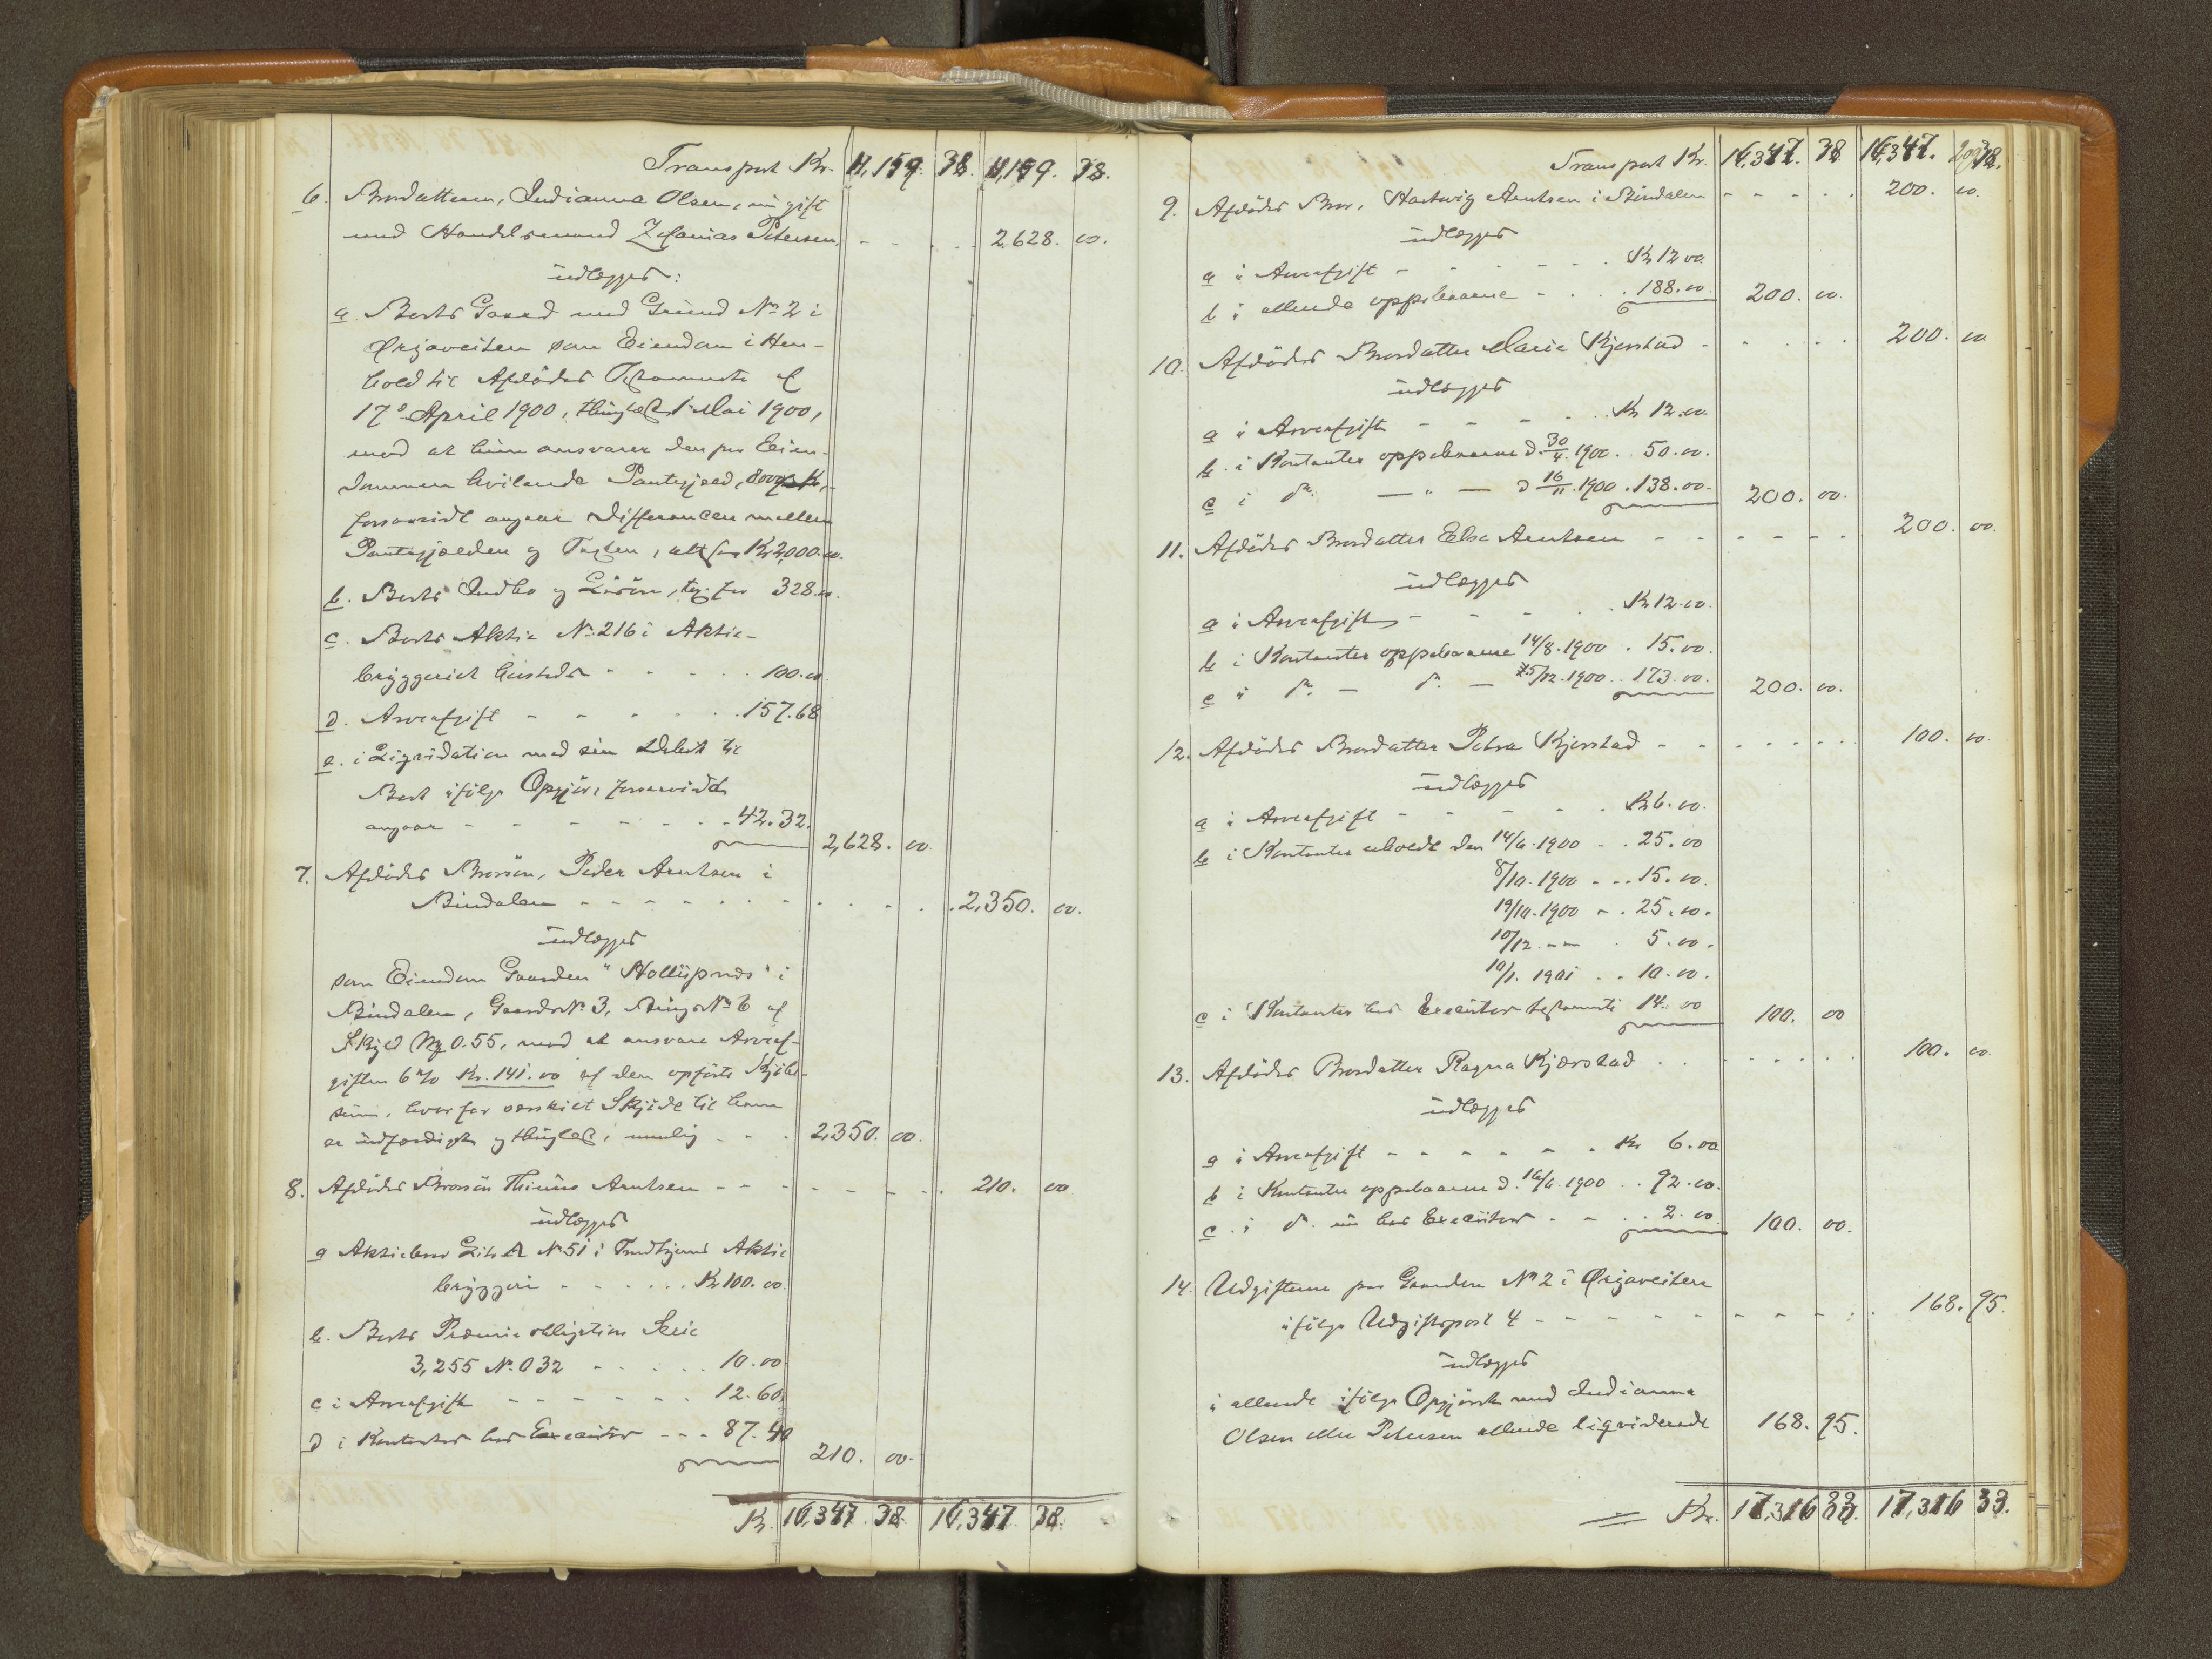 Transport Kr. 11,159. 38. 11,159. 38.
6. Brordatteren, Indianna Olsen, nu gift
med Handelsmand Zefanias Petersen - - - 2,628. 00.
udlægges:
a Boets Gaard med Grund No 2 i
Ørjaveiten som Eiendom i Hen-
hold til Afdødes Testamente af
17de April 1900, thinglæst 1 Mai 1900,
mod at hun ansvarer den paa Eien-
dommen hvilende Pantegjæld, 8000 Kr.,
forsaavidt angaar Differancen mellem
Pantegjælden og Taxten, altsaa Kr 2,000.00.
b. Boets Indbo og Løsøre, tax. for 328.00.
c. Boets Aktie No 216 i Aktie-
bryggeriet - - - 100.00
d. Arveafgift - - - 157.68
e. i Liqvidation med sin Debet til
Boet ifølge Opgjør, forsaavidt
angaar - - - 42.32.
2,628. 00.
7. Afdødes Brorsøn, Peder Arntsen i
Bindalen - - - 2,350. 00.
udlægges
som Eiendom Gaarden "Hollupnæs" i
Bindalen, Gaards No 3, Brugs No 6 af
Skyld Mk 0.55, mod at ansvare Arveaf-
giften 6% Kr. 141.00 af den opførte Kjøbe-
sum, hvorfor særskilt Skjøde til ham
er udfærdiget og thinglæst, nemlig - - - 2,350. 00.
8. Afdødes Brorsøn Thinus Arntsen - - - 210. 00
udlægges
a Aktiebrev Litr A No 51 i Trondhjems Aktie
bryggeri - - - Kr 100.00.
b. Boets Præmieobligation Serie
3,255 No. 032 - - - 10.00
c i Arveafgift - - - 12.60
d i Kontanter hos Executor - - - 87.40
210. 00.
Kr. 16,347. 38. 16,347. 38.
Transport Kr. 16,347. 38 16,347. 38.
9. Afdødes Bror, Hartvig Arntsen i Bindalen - - - 200. 00.
udlægges
a i Arveafgift - - - Kr 12 00
b i allerede oppebaarne - - - 188.00 200. 00.
10. Afdødes Brordatter Marie Kjerstad - - - 200. 00
udlægges
a i Arveafgift - - - Kr 12.00
b. i Kontanter oppebaarne d. 30/4. 1900. . 50.00.
c i do. — " — d 16/11. 1900 . 138.00. 200. 00.
11. Afdødes Brordatter Else Arntsen - - - 200. 00.
udlægges
a i Arveafgift - - - Kr 12.00.
b i Kontanter oppebaarne 14/8. 1900 . 15.00.
c i do. — do. — 15/12. 1900 . . 173.00. 200. 00.
12. Afdødes Brordatter Petra Kjerstad - - - 100. 00.
udlægges
a i Arveafgift - - - Kr 6.00.
b i Kontanter erholdt den 14/6. 1900 - . 25.00
8/10. 1900 . - . 15.00.
19/10. 1900 - . 25.00.
10/12. - — . 5.00.
10/1. 1901 . . 10.00.
c i Kontanter hos Executor testamenti 14. 00 100. 00
13. Afdødes Brordatter Ragna Kjærstad - - - 100. 00.
udlægges
a i Arveafgift - - - Kr 6.00
b i Kontanter oppebaarne d. 16/6. 1900 . . 92.00.
c. i do. nu hos Executor - - - 2.00. 100. 00.
14. Udgifterne paa Gaarden No 2 i Ørjaveiten
ifølge Udgiftspost 4 - - - 168. 95.
udlægges
i allerede ifølge Opgjørsl. med Indianna
Olsen eller Petersen allerede liqviderede 168. 95.
Kr. 17,316 33. 17,316 33.